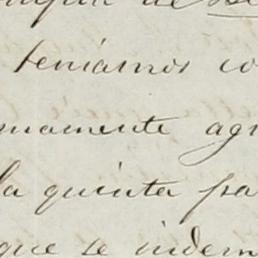 teniamos co
mamente agr
la quinta pa
que se indem